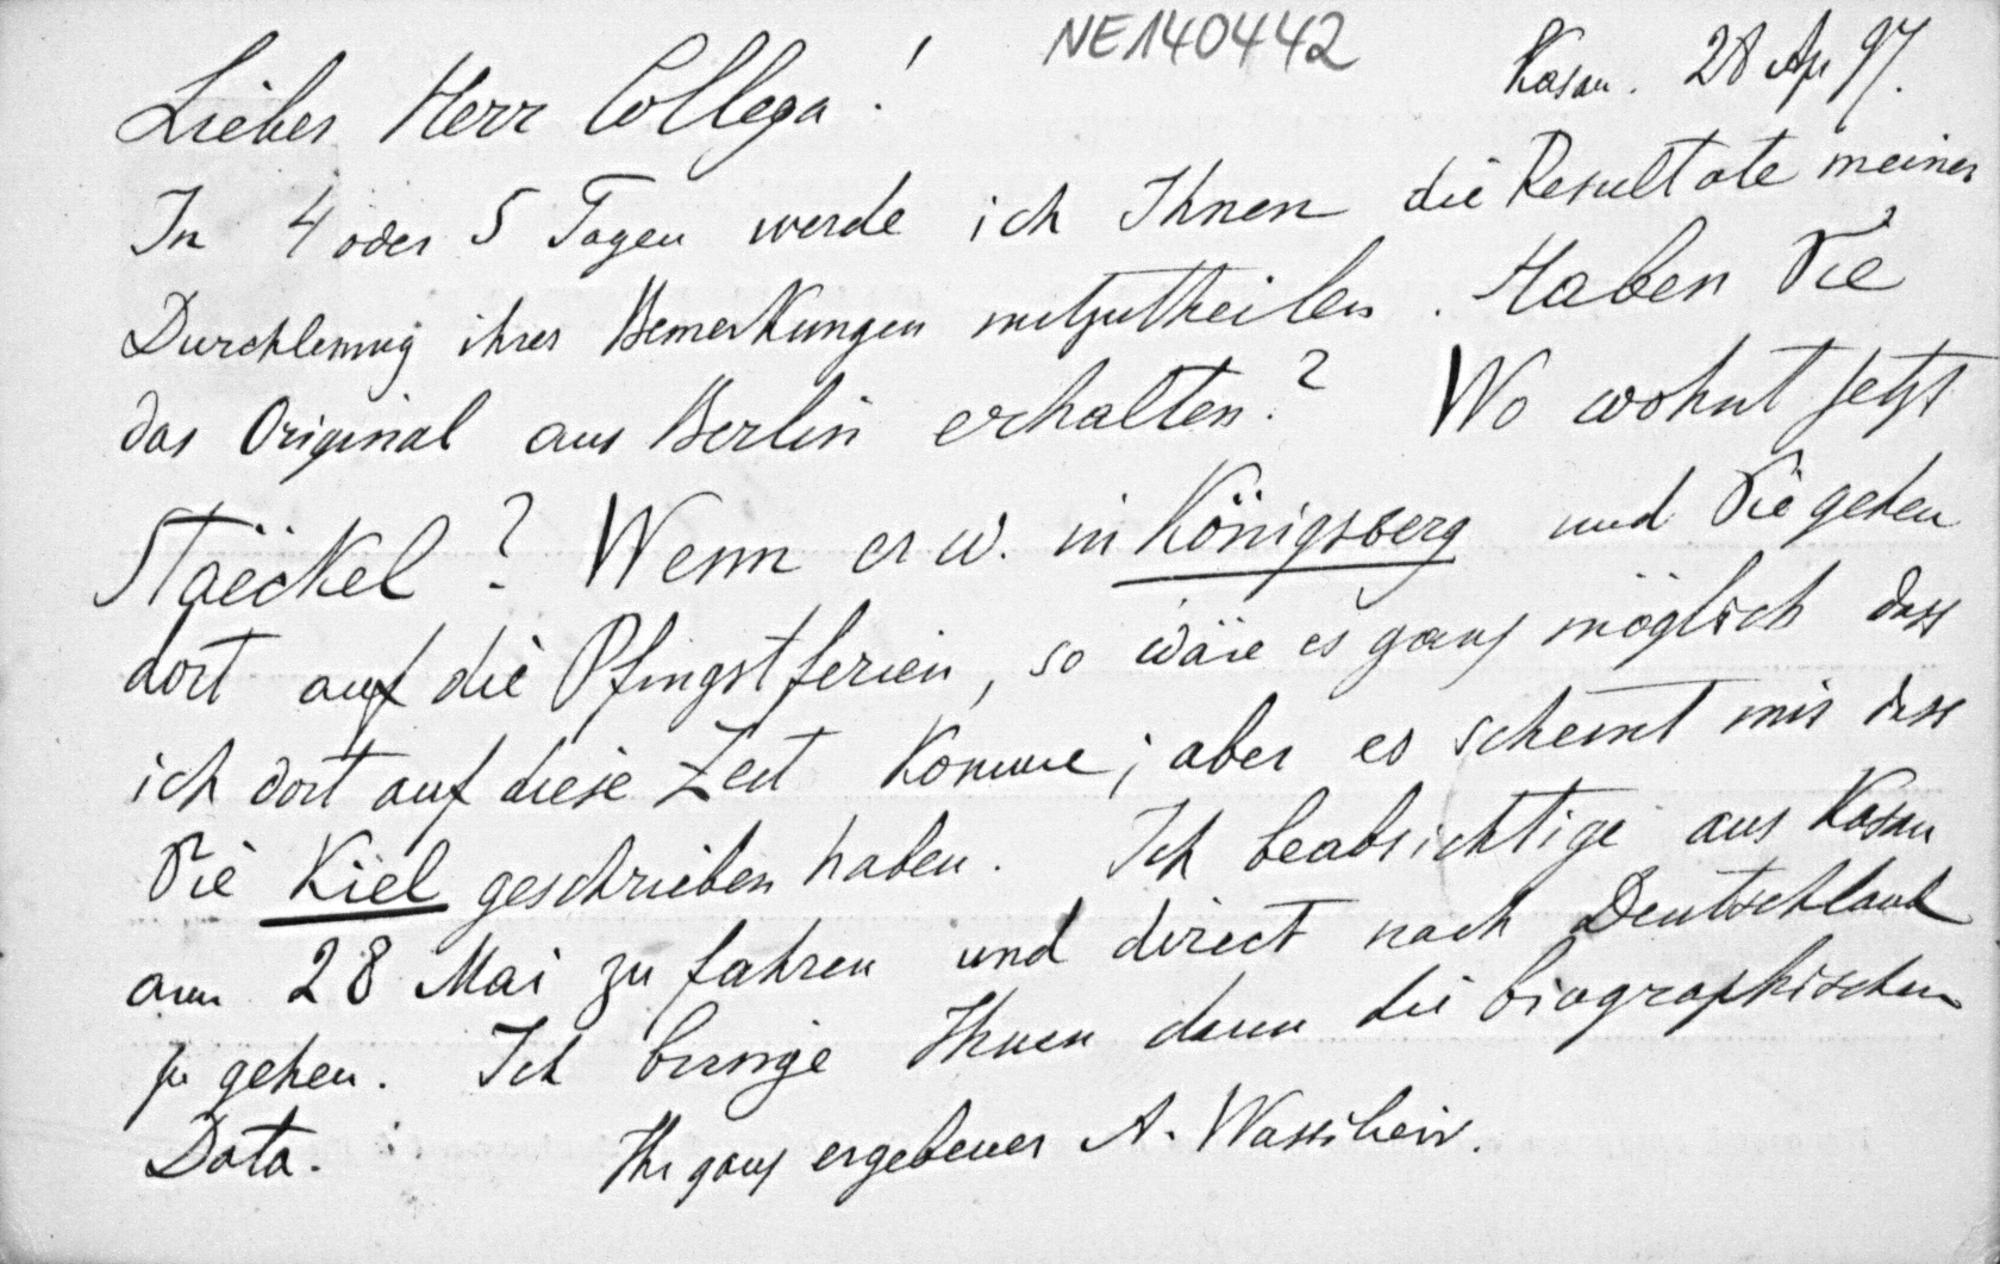 NE140442
Kasan. 28 Ap 97.
Lieber Herr Collega!
In 4 oder 5 Tagen werde ich Ihnen die Resultate meiner
Durchlesung ihrer Bemerkungen mitzutheilen. Haben Sie
das Original aus Berlin erhalten? Wo wohnt jetzt
Staëckel? Wenn er w. in Königsberg und Sie gehen
dort auf die Pfingstferien, so wäre es ganz möglich dass
ich dort auf diese Zeit komme; aber es scheint mir dass
Sie Kiel geschrieben haben. Ich beabsichtige aus Kasan
am 28 Mai zu fahren und direct nach Deutschland
zu gehen. Ich bringe Ihnen dann die biographischen
Data. Ihr ganz ergebener A. Wassiliew.